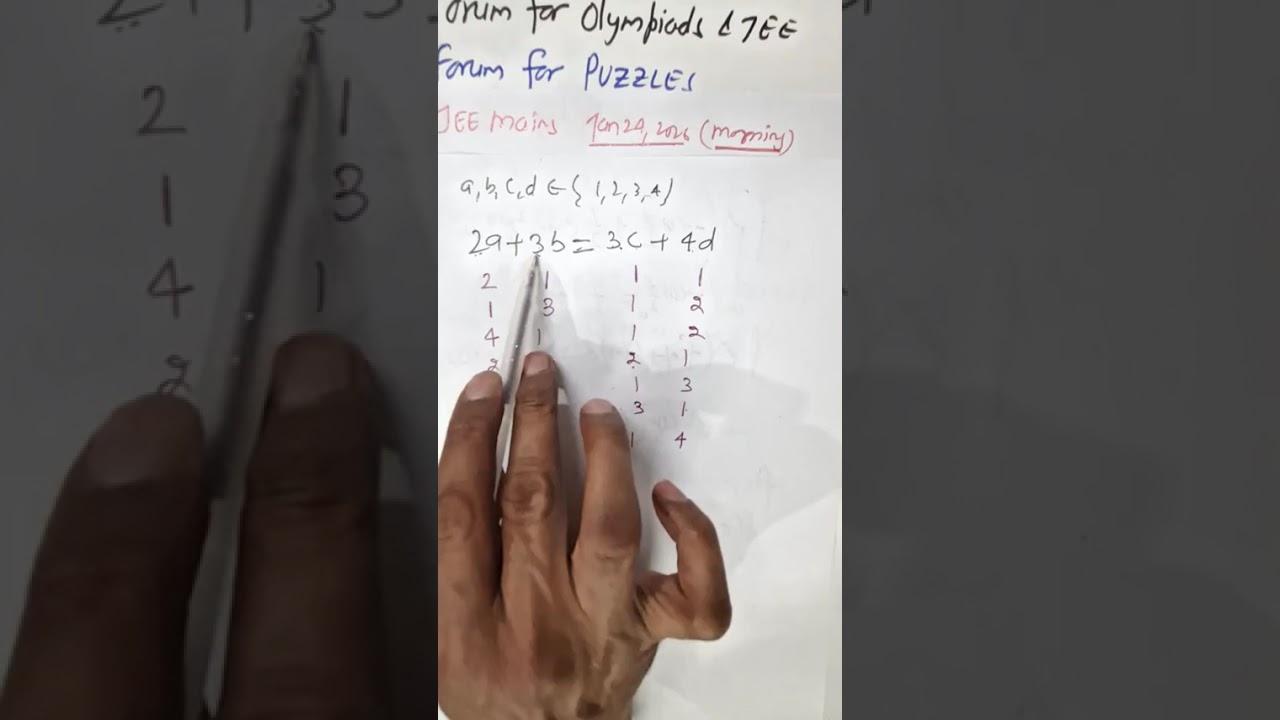 orum for Olympiads & JEE
Forum for PUZZLES
JEE mains Jan 24, 2026 (morning)
a, b, c, d ∈ { 1, 2, 3, 4 }
2a + 3b = 3c + 4d
2 1 1 1
1 3 1 2
4 1 1 2
2 2 1
1 3
3 1
1 4